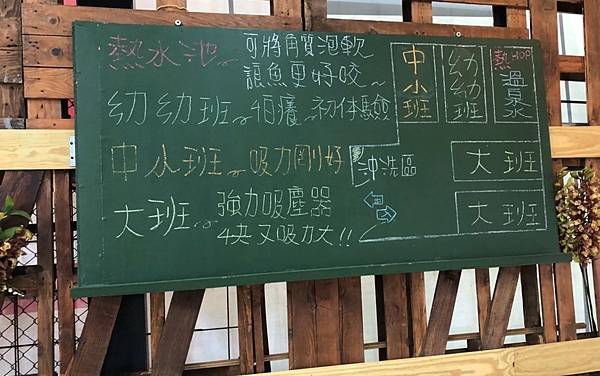 熱水池~可將角質泡軟
讓魚更好咬~
幼幼班~怕癢~初体驗
中小班~吸力剛好
大班~強力吸塵器
4快又吸力大!!
沖洗區
中小班
幼幼班
熱HOT
溫泉水
大班
大班